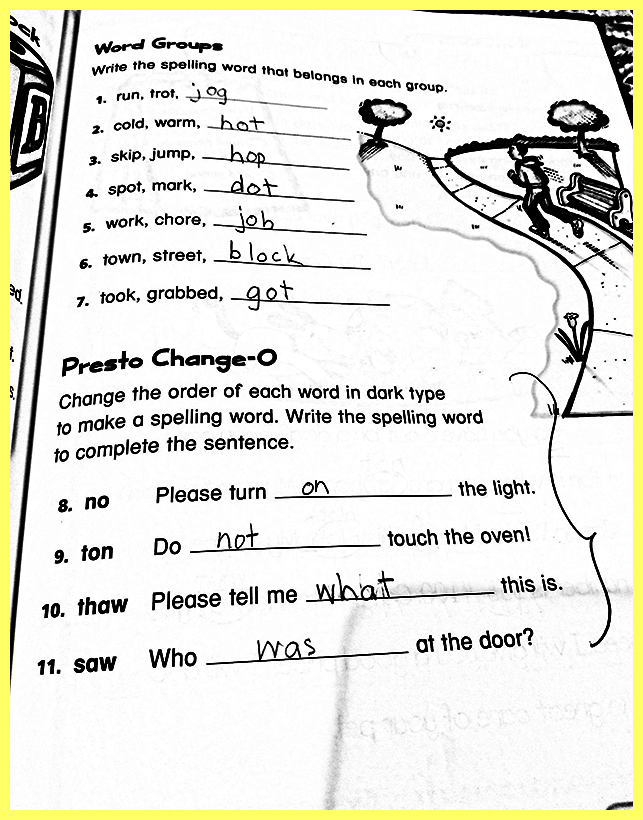 ock
B
Word Groups
Write the spelling word that belongs in each group.
1. run, trot, jog
2. cold, warm, hot
3. skip, jump, hop
4. spot, mark, dot
5. work, chore, job
6. town, street, block
7. took, grabbed, got
Presto Change-O
Change the order of each word in dark type
to make a spelling word. Write the spelling word
to complete the sentence.
8. no Please turn on the light.
9. ton Do not touch the oven!
10. thaw Please tell me what this is.
11. saw Who was at the door?